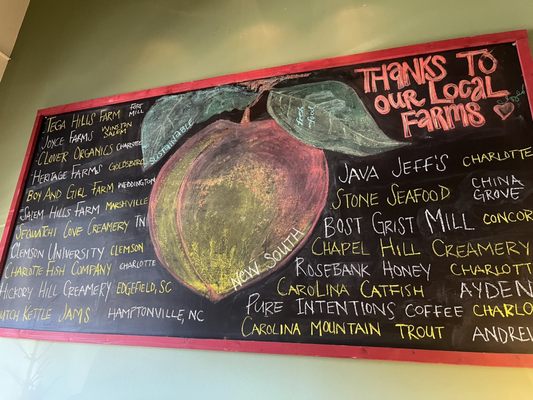 TEGA HILLS FARM FORT MILL
JOYCE FARMS WINSTON SALEM
CLOVER ORGANICS CHARLOTTE
HERITAGE FARMS GOLDSBORO
BOY AND GIRL FARM WEDDINGTON
SALEM HILLS FARM MARSHVILLE
SEQUATCHI COVE CREAMERY TN
CLEMSON UNIVERSITY CLEMSON
CHARLOTTE FISH COMPANY CHARLOTTE
HICKORY HILL CREAMERY EDGEFIELD, SC
DUTCH KETTLE JAMS HAMPTONVILLE, NC
SUSTAINABLE
NEW SOUTH
THANKS TO
OUR LOCAL
FARMS
JAVA JEFF'S CHARLOTTE
STONE SEAFOOD CHINA GROVE
BOST GRIST MILL CONCOR
CHAPEL HILL CREAMERY
ROSEBANK HONEY CHARLOTTE
CAROLINA CATFISH AYDEN
PURE INTENTIONS COFFEE CHARLO
CAROLINA MOUNTAIN TROUT ANDREW